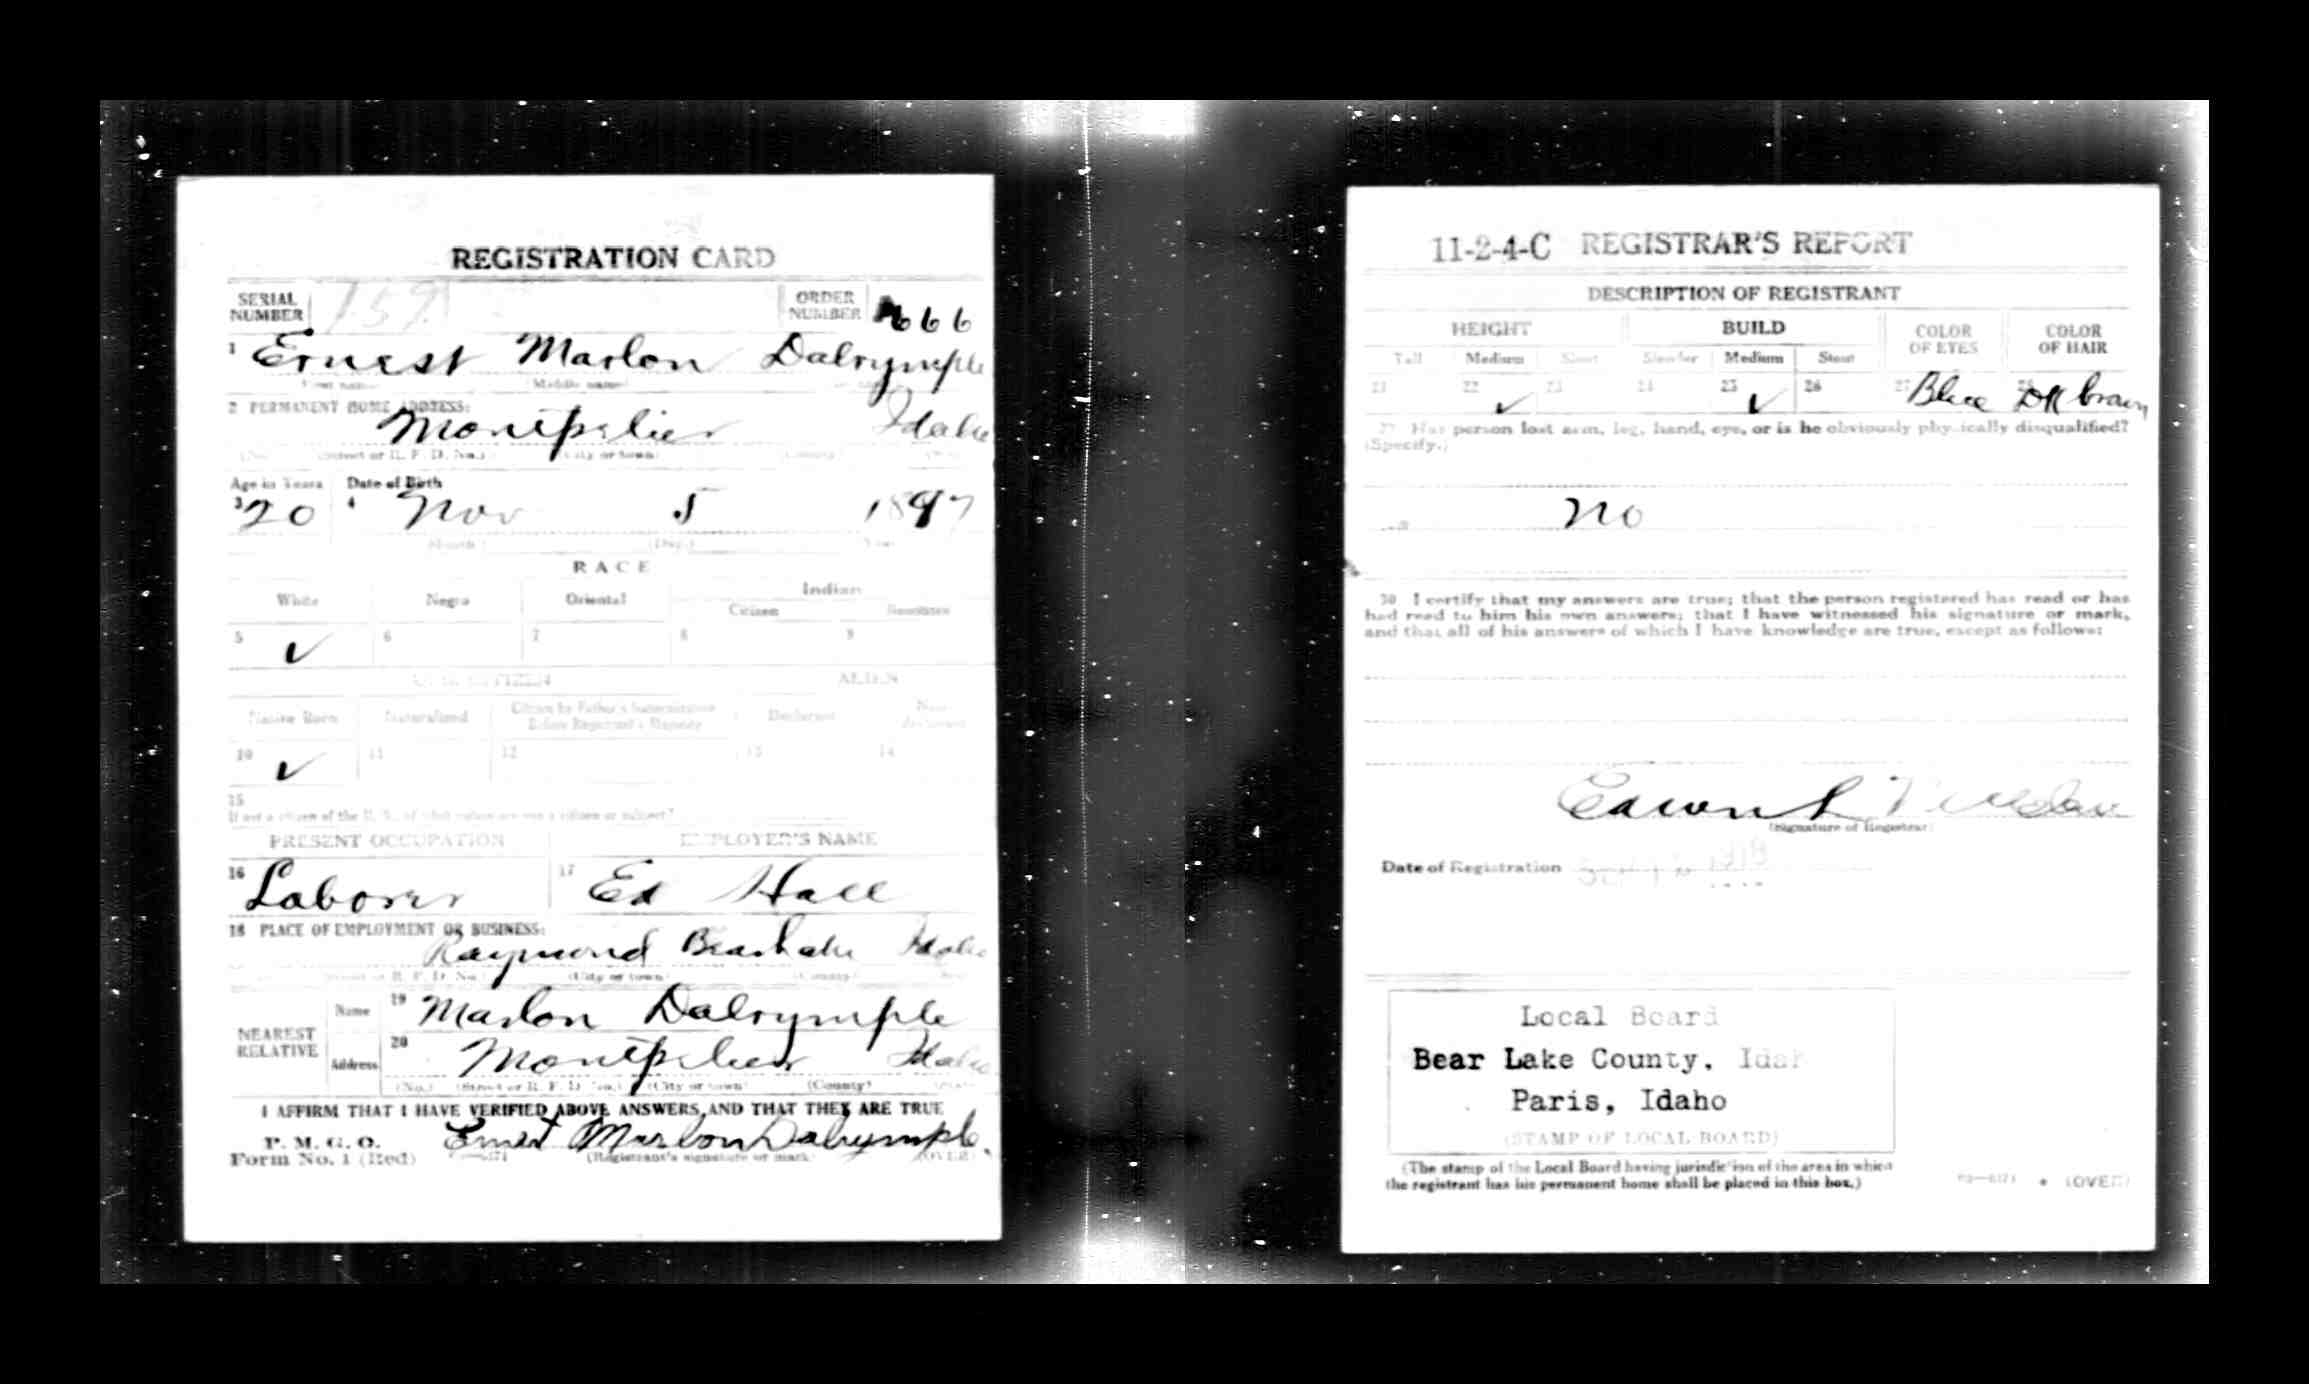 REGISTRATION CARD
SERIAL NUMBER 159 ORDER NUMBER 666
1 Ernest Marlon Dalrymple
First name Middle name
2 PERMANENT HOME ADDRESS:
Montpelier Idaho
(Street or R. F. D. No.) (City or town) (County)
Age in Years Date of Birth
3 20 4 Nov 5 1897
Month (Day) Year
RACE
White Negro Oriental Indian
Citizen
5 ✓ 6 7 8 9
U. S. CITIZEN ALIEN
Native Born Naturalized Citizen by Father's Naturalization Before Registrant's Majority Declarant Non-declarant
10 ✓ 11 12 13 14
15
If not a citizen of the U. S., of what nation are you a citizen or subject?
PRESENT OCCUPATION EMPLOYER'S NAME
16 Laborer 17 Ed Hall
18 PLACE OF EMPLOYMENT OR BUSINESS:
Raymond Bear Lake Idaho
(Street or R. F. D. No.) (City or town) (County)
NEAREST RELATIVE Name 19 Marlon Dalrymple
Address 20 Montpelier Idaho
(No.) (Street or R. F. D. No.) (City or town) (County)
I AFFIRM THAT I HAVE VERIFIED ABOVE ANSWERS AND THAT THEY ARE TRUE
P. M. G. O.
Form No. 1 (Red) Ernest Marlon Dalrymple
(Registrant's signature or mark) (OVER)
11-2-4-C REGISTRAR'S REPORT
DESCRIPTION OF REGISTRANT
HEIGHT BUILD COLOR OF EYES COLOR OF HAIR
Tall Medium Short Slender Medium Stout
21 22 ✓ 23 24 25 ✓ 26 27 Blue 28 DK brown
29 Has person lost arm, leg, hand, eye, or is he obviously physically disqualified?
(Specify.)
No
30 I certify that my answers are true; that the person registered has read or has
had read to him his own answers; that I have witnessed his signature or mark,
and that all of his answers of which I have knowledge are true, except as follows:
(Signature of Registrar)
Date of Registration 1918
Local Board
Bear Lake County, Idah
Paris, Idaho
(STAMP OF LOCAL BOARD)
(The stamp of the Local Board having jurisdiction of the area in which
the registrant has his permanent home shall be placed in this box.)
(OVER)